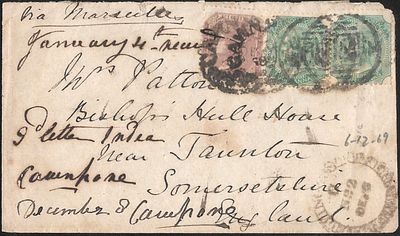 Via Marseilles
January 4th
Mrs Patton
Bishop's Hull House
9th letter India
near Taunton
6-12-69
Cawnpore
Somersetshire
December 8 Cawnpore England